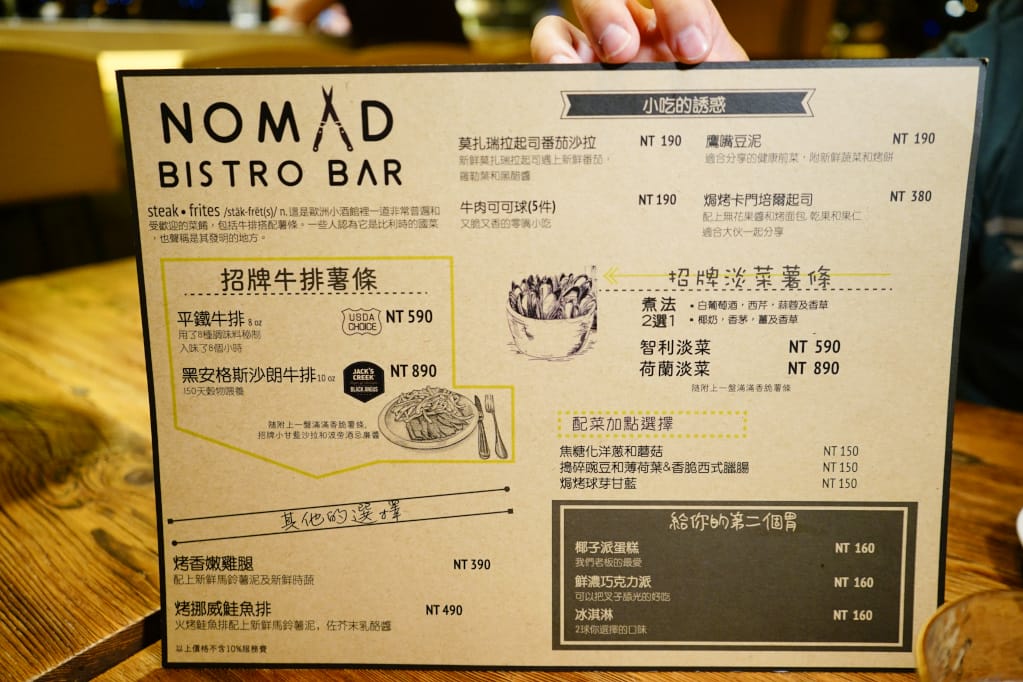 NOMAD
BISTRO BAR
steak • frites /stāk-frēt(s)/ n.這是歐洲小酒館裡一道非常普遍和
受歡迎的菜餚，包括牛排搭配薯條。一些人認為它是比利時的國菜
，也聲稱是其發明的地方。
招牌牛排薯條
平鐵牛排 8 oz
USDA
CHOICE
NT 590
用了8種調味料秘制
入味了8個小時
黑安格斯沙朗牛排 10 oz
JACK'S
CREEK
BLACK ANGUS
NT 890
150天穀物喂養
隨附上一盤滿滿香脆薯條,
招牌小甘藍沙拉和波旁酒忌廉醬
其他的選擇
烤香嫩雞腿 NT 390
配上新鮮馬鈴薯泥及新鮮時蔬
烤挪威鮭魚排 NT 490
火烤鮭魚排配上新鮮馬鈴薯泥，佐芥末乳酪醬
以上價格不含10%服務費
小吃的誘惑
莫扎瑞拉起司番茄沙拉 NT 190
新鮮莫扎瑞拉起司遇上新鮮番茄,
羅勒葉和黑醋醬
牛肉可可球(5件) NT 190
又脆又香的零嘴小吃
鷹嘴豆泥 NT 190
適合分享的健康前菜，附新鮮蔬菜和烤餅
焗烤卡門培爾起司 NT 380
配上無花果醬和烤面包, 乾果和果仁
適合大伙一起分享
招牌淡菜薯條
煮法
2選1
• 白葡萄酒，西芹，蒜蓉及香草
• 椰奶，香茅，薑及香草
智利淡菜 NT 590
荷蘭淡菜 NT 890
隨附上一盤滿滿香脆薯條
配菜加點選擇
焦糖化洋蔥和蘑菇 NT 150
搗碎豌豆和薄荷葉&香脆西式臘腸 NT 150
焗烤球芽甘藍 NT 150
給你的第二個胃
椰子派蛋糕 NT 160
我們老板的最愛
鮮濃巧克力派 NT 160
可以把叉子舔光的好吃
冰淇淋 NT 160
2球你選擇的口味